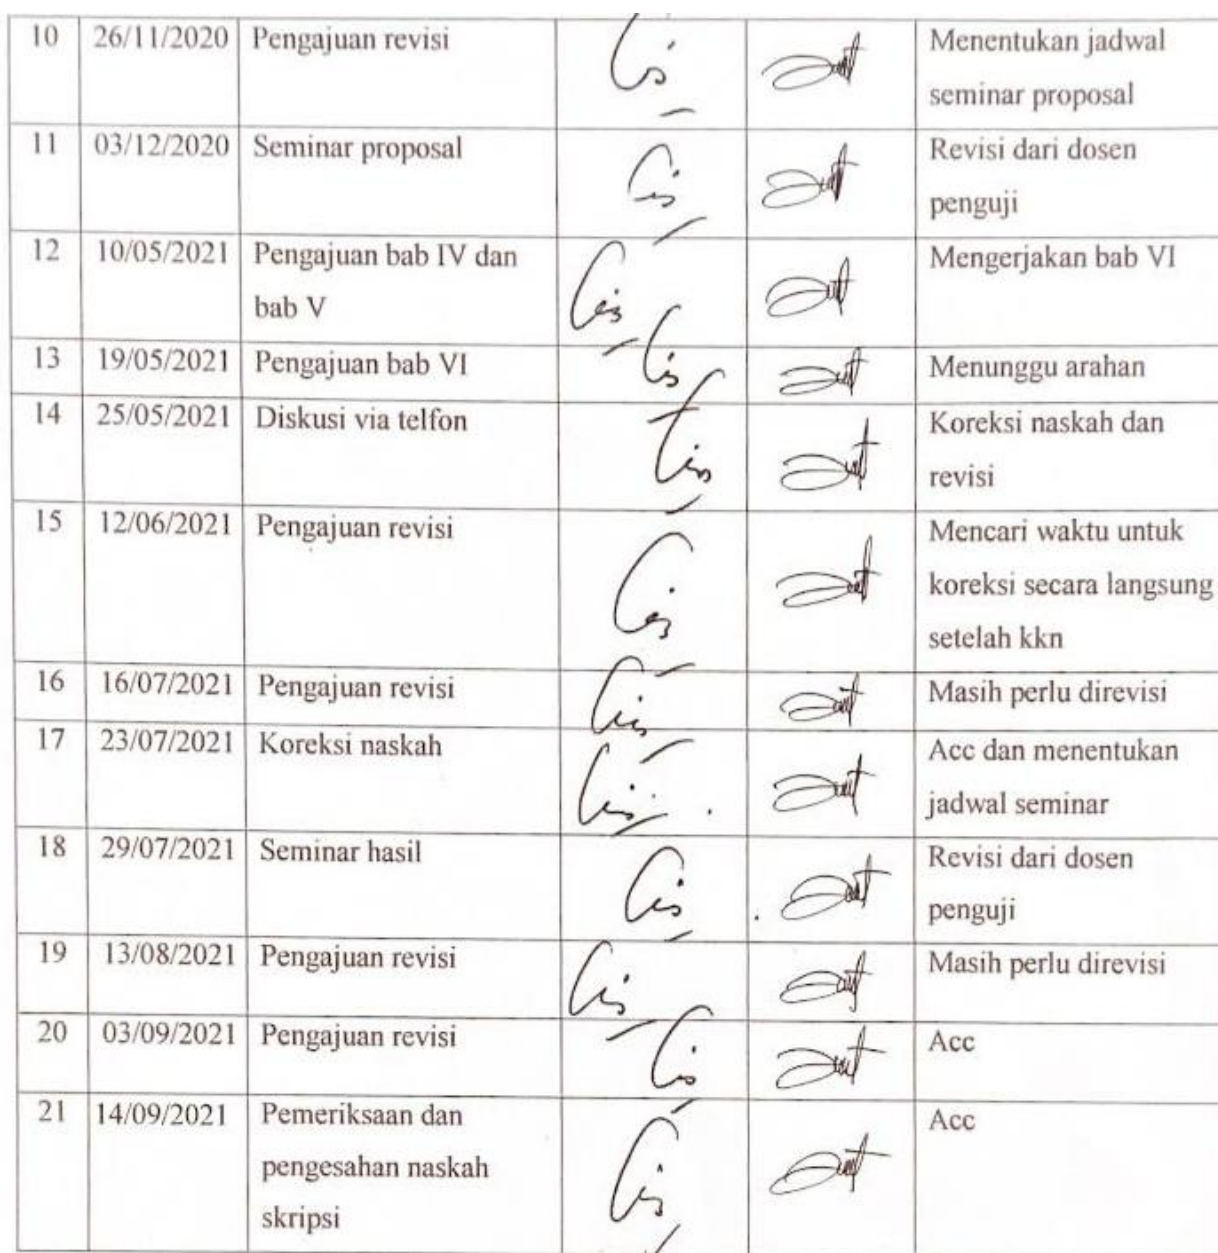 10 26/11/2020 Pengajuan revisi Menentukan jadwal
seminar proposal
11 03/12/2020 Seminar proposal Revisi dari dosen
penguji
12 10/05/2021 Pengajuan bab IV dan Mengerjakan bab VI
bab V
13 19/05/2021 Pengajuan bab VI Menunggu arahan
14 25/05/2021 Diskusi via telfon Koreksi naskah dan
revisi
15 12/06/2021 Pengajuan revisi Mencari waktu untuk
koreksi secara langsung
setelah kkn
16 16/07/2021 Pengajuan revisi Masih perlu direvisi
17 23/07/2021 Koreksi naskah Acc dan menentukan
jadwal seminar
18 29/07/2021 Seminar hasil Revisi dari dosen
penguji
19 13/08/2021 Pengajuan revisi Masih perlu direvisi
20 03/09/2021 Pengajuan revisi Acc
21 14/09/2021 Pemeriksaan dan Acc
pengesahan naskah
skripsi